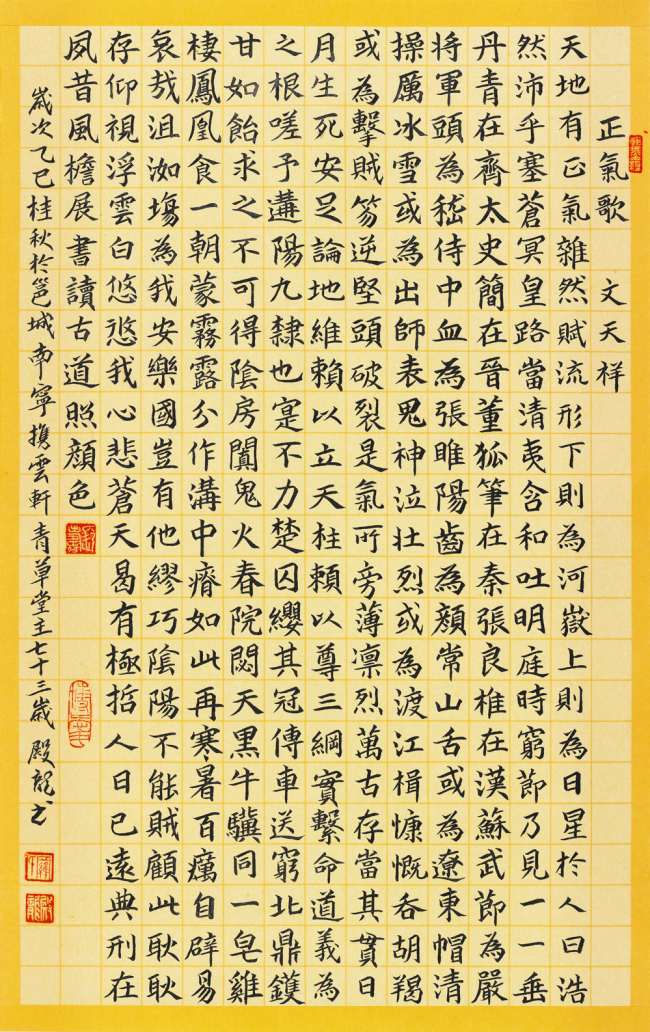 正氣歌 文天祥
天地有正氣雜然賦流形下則為河嶽上則為日星於人曰浩
然沛乎塞蒼冥皇路當清夷含和吐明庭時窮節乃見一一垂
丹青在齊太史簡在晉董狐筆在秦張良椎在漢蘇武節為嚴
將軍頭為嵇侍中血為張睢陽齒為顏常山舌或為遼東帽清
操厲冰雪或為出師表鬼神泣壯烈或為渡江楫慷慨吞胡羯
或為擊賊笏逆堅頭破裂是氣所旁薄凛烈萬古存當其貫日
月生死安足論地維賴以立天柱賴以尊三綱實繫命道義為
之根嗟予遘陽九隸也寔不力楚囚纓其冠傳車送窮北鼎鑊
甘如飴求之不可得陰房闐鬼火春院閟天黑牛驥同一皂雞
棲鳳凰食一朝蒙霧露分作溝中瘠如此再寒暑百癘自辟易
哀哉沮洳塲為我安樂國豈有他繆巧陰陽不能賊顧此耿耿
存仰視浮雲白悠悠我心悲蒼天曷有極哲人日已遠典刑在
夙昔風檐展書讀古道照顏色
歲次乙巳桂秋於邕城南寧携雲軒青草堂主七十三歲殿龍书